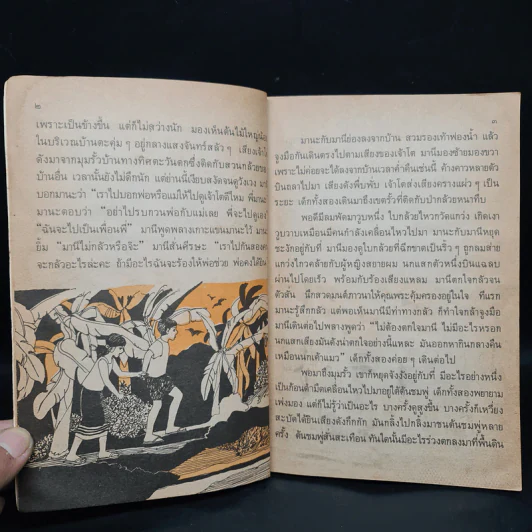 ๒
เพราะเป็นข้างขึ้น แต่ก็ไม่สว่างนัก มองเห็นต้นไม้ใหญ่น้อย
ในบริเวณบ้านตะคุ่ม ๆ อยู่กลางแสงจันทร์สลัว ๆ เสียงเจ้าโต
ดังมาจากมุมรั้วบ้านทางทิศตะวันตกซึ่งติดกับสวนกล้วยของ
บ้านอื่น เวลานั้นยังไม่ดึกนัก แต่ย่านนี้เงียบสงัดจนดูวังเวง มานี
บอกมานะว่า “เราไปบอกพ่อหรือแม่ให้ไปดูเจ้าโตดีไหม พี่มานะ”
มานะตอบว่า “อย่าไปรบกวนพ่อกับแม่เลย พี่จะไปดูเอง”
“ฉันจะไปเป็นเพื่อนพี่” มานีพูดพลางเกาะแขนมานะไว้ มานะ
ยิ้ม “มานีไม่กลัวหรือจ๊ะ” มานีสั่นศีรษะ “เราไปกันสองคน
จะกลัวอะไรล่ะคะ ถ้ามีอะไรฉันจะร้องให้พ่อช่วย พ่อคงได้ยิน”
๓
มานะกับมานีย่องลงจากบ้าน สวมรองเท้าฟองน้ำ แล้ว
จูงมือกันเดินตรงไปตามเสียงของเจ้าโต มานีมองซ้ายมองขวา
เพราะไม่ค่อยจะได้ลงจากบ้านเวลาค่ำคืนเช่นนี้ ค้างคาวหลายตัว
บินถลาไปมา เสียงดังพึ่บพั่บ เจ้าโตส่งเสียงครางแผ่ว ๆ เป็น
ระยะ เด็กทั้งสองเดินมาถึงเขตรั้วที่ติดกับป่ากล้วยหนาทึบ
พอดีมีลมพัดมาวูบหนึ่ง ใบกล้วยไหวกวัดแกว่ง เกิดเงา
วูบวาบเหมือนมีคนกำลังเคลื่อนไหวไปมา มานะกับมานีหยุด
ชะงักอยู่กับที่ มานีมองดูใบกล้วยที่ฉีกขาดเป็นริ้ว ๆ ถูกลมส่าย
แกว่งไกวคล้ายกับผู้หญิงสยายผม นกแสกตัวหนึ่งบินแฉลบ
ผ่านไปโดยเร็ว พร้อมกับร้องเสียงแหลม มานีตกใจกลัวจน
ตัวสั่น นึกสวดมนต์ภาวนาให้คุณพระคุ้มครองอยู่ในใจ ที่แรก
มานะรู้สึกกลัว แต่พอเห็นมานีมีท่าทางกลัว ก็ทำใจกล้าจูงมือ
มานีเดินต่อไปพลางพูดว่า “ไม่ต้องตกใจมานี ไม่มีอะไรหรอก
นกแสกเสียงมันดังน่าตกใจอย่างนี้แหละ มันออกหากินกลางคืน
เหมือนนกเค้าแมว” เด็กทั้งสองค่อย ๆ เดินต่อไป
พอมาถึงมุมรั้ว เขาก็หยุดจังงังอยู่กับที่ มีอะไรอย่างหนึ่ง
เป็นก้อนดำมืดเคลื่อนไหวไปมาอยู่ใต้ต้นชมพู่ เด็กทั้งสองพยายาม
เพ่งมอง แต่ก็ไม่รู้ว่าเป็นอะไร บางครั้งดูสูงขึ้น บางครั้งก็เหวี่ยง
สะบัดได้ยินเสียงดังกึกกัก มันกลิ้งไปกลิ้งมาชนต้นชมพู่หลาย
ครั้ง ต้นชมพู่สั่นสะเทือน ทันใดนั้นมีอะไรร่วงตกลงมาที่พื้นดิน